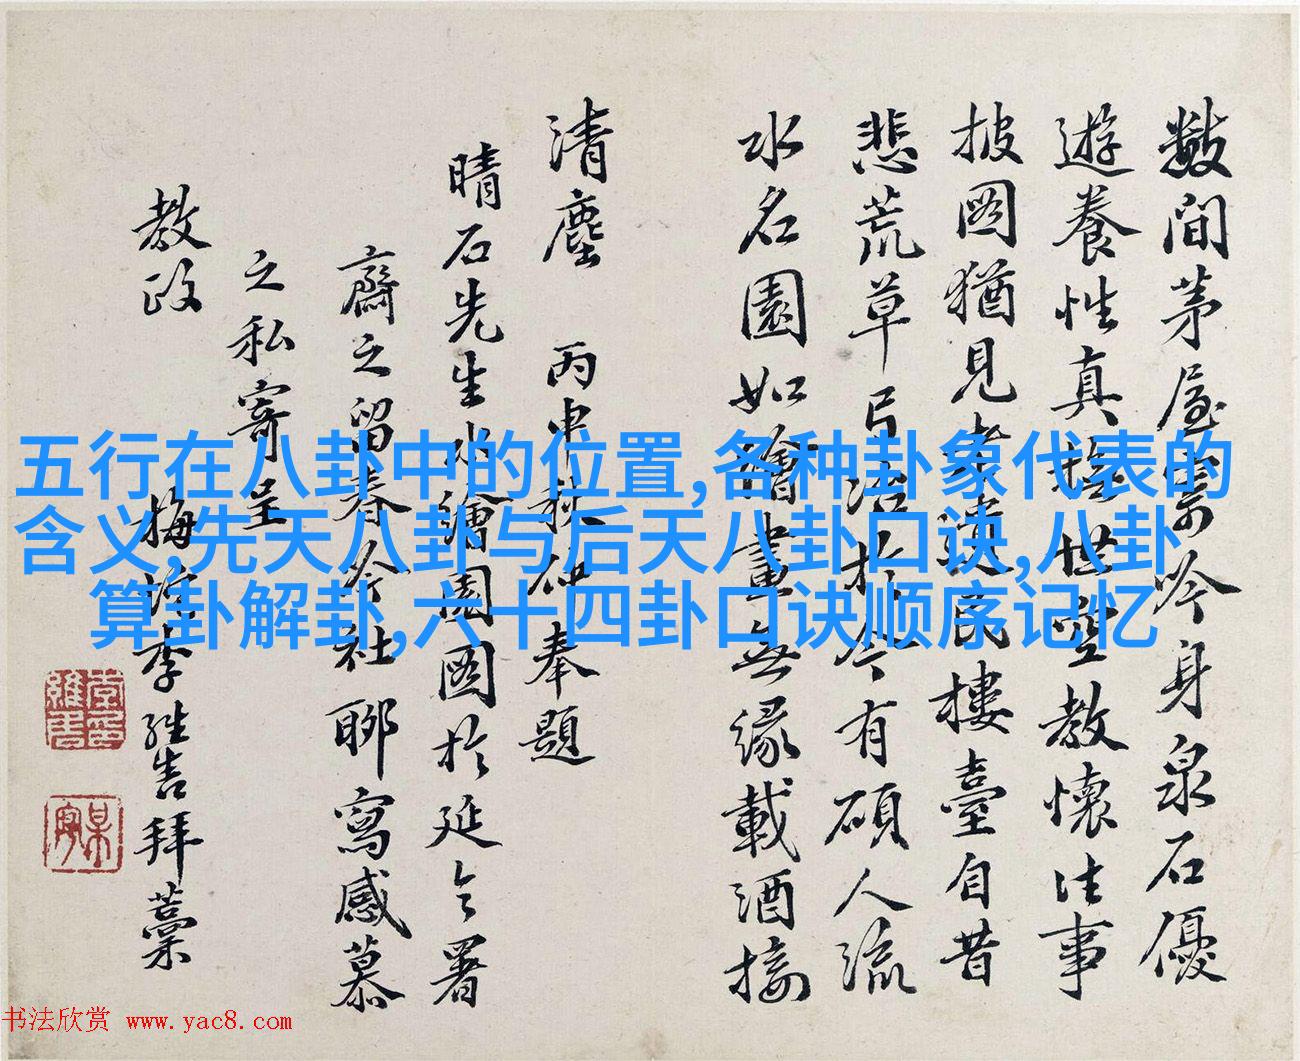 數間茅屋寄吟身泉石優
遊養性真世豈教懷往事
披圖猶見遺民樓臺自昔
悲荒草弓冶於今有碩人流
水名園如繪畫無緣載酒接
清塵 丙申秋仲奉題
晴石先生水繪園圖於延令署
齋之留春令社聊寫感慕
之私寄呈
教政
梅李拜藁
五行在八卦中的位置,各种卦象代表的
含义,先天八卦与后天八卦口诀,八卦
算卦解卦,六十四卦口诀顺序记忆
书法欣赏 www.yac8.com